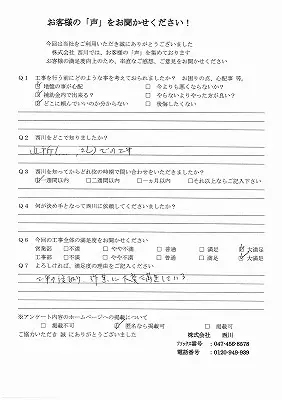 お客様の「声」をお聞かせください！
今回は当社をご利用いただき誠にありがとうございました
株式会社 西川では、お客様の「声」を集めております
お客様の満足度向上のため、率直なご感想、ご意見をお聞かせください
Q1 工事を行う前にどのような事を考えておられましたか？ お困りの点、心配事 等。
☑地盤の事が心配 □今よりも悪くならないか？
☑補助金内で出来る？ □やらないよりやった方が良い？
☑どこに頼んでいいのか分からない □後悔したくない
Q2 西川をどこで知りましたか？
Q3 西川を知ってからどれ位の時期で問い合わせをいただきましたか？
☑一週間以内 □二週間以内 □一ヵ月以内 □それ以上ならご記入下さい
Q4 何が決め手となって西川に依頼してくださいましたか？
Q6 今回の工事全体の満足度をお聞かせください
営業部 □不満 □やや不満 □普通 □満足 ☑大満足
工事部 □不満 □やや不満 □普通 □満足 ☑大満足
Q7 よろしければ、満足度の理由をご記入ください
※アンケート内容のホームページへの掲載について
□掲載不可 ☑匿名なら掲載可 □掲載可
ご協力いただき誠にありがとうございました
株式会社 西川
ファックス番号 ：047-456-8578
電話番号 ：0120-949-939